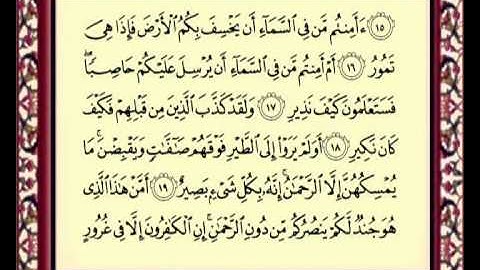 ﴿١٥﴾ ءَأَمِنتُم مَّن فِي ٱلسَّمَآءِ أَن يَخۡسِفَ بِكُمُ ٱلۡأَرۡضَ فَإِذَا هِيَ
تَمُورُ ﴿١٦﴾ أَمۡ أَمِنتُم مَّن فِي ٱلسَّمَآءِ أَن يُرۡسِلَ عَلَيۡكُمۡ حَاصِبٗاۖ
فَسَتَعۡلَمُونَ كَيۡفَ نَذِيرِ ﴿١٧﴾ وَلَقَدۡ كَذَّبَ ٱلَّذِينَ مِن قَبۡلِهِمۡ فَكَيۡفَ
كَانَ نَكِيرِ ﴿١٨﴾ أَوَلَمۡ يَرَوۡاْ إِلَى ٱلطَّيۡرِ فَوۡقَهُمۡ صَٰٓفَّٰتٖ وَيَقۡبِضۡنَۚ مَا
يُمۡسِكُهُنَّ إِلَّا ٱلرَّحۡمَٰنُۚ إِنَّهُۥ بِكُلِّ شَيۡءِۭ بَصِيرٌ ﴿١٩﴾ أَمَّنۡ هَٰذَا ٱلَّذِي
هُوَ جُندٞ لَّكُمۡ يَنصُرُكُم مِّن دُونِ ٱلرَّحۡمَٰنِۚ إِنِ ٱلۡكَٰفِرُونَ إِلَّا فِي غُرُورٍ